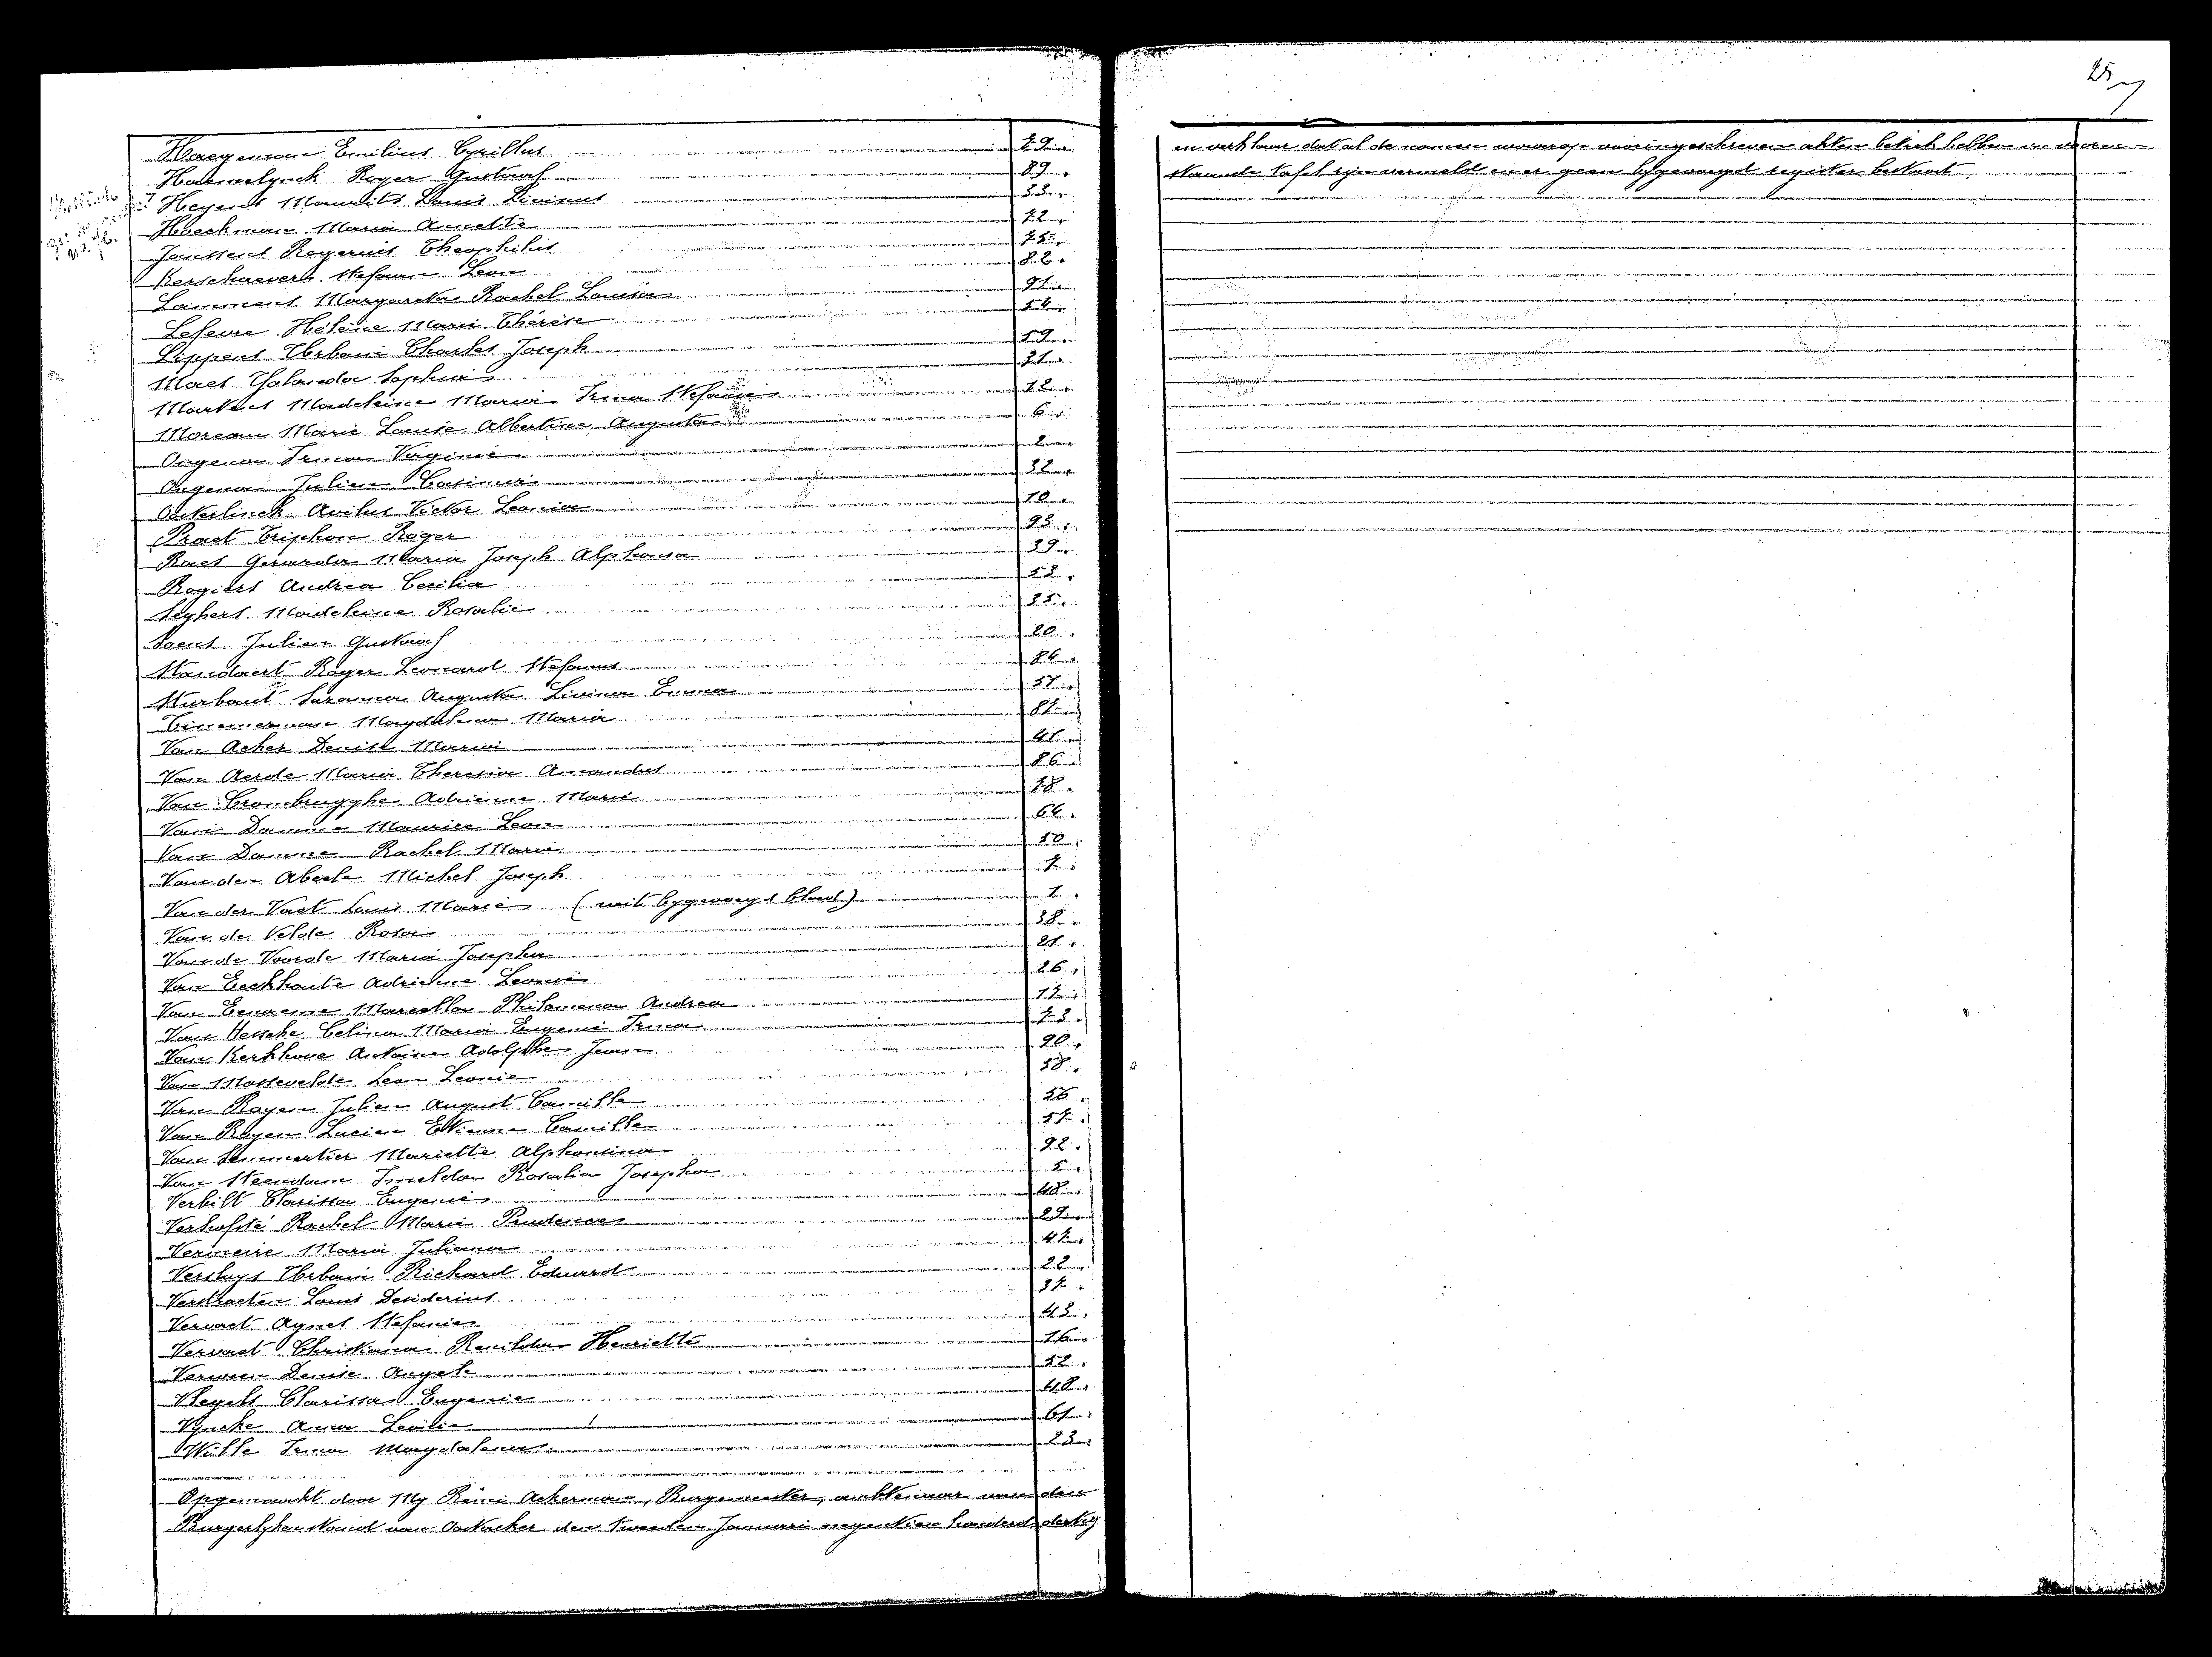 25
Haegeman Emilius Cyrillus 79.
Haemelynck Roger Gustaaf 89.
Heyens Maurits Louis Livinus 33.
Hoeckman Maria Annette 72.
Janssens Rogerius Theophilus 75.
Kerschaever Stefanie Leon 82.
Lammens Margareta Rachel Louisa 91.
Lefevre Hélène Marie Thérèse 54.
Lippens Urbain Charles Joseph 59.
Maes Yolanda Sophia 31.
Martens Madeleine Maria Irma Stefanie 12.
Moreau Marie Louise Albertine Augusta 6.
Ongena Irma Virginie 2.
Ongena Julien Casimir 32.
Oosterlinck Avilus Victor Leonia 10.
Praet Triphon Roger 93.
Raes Gerarda Maria Joseph Alphonsa 39.
Rogiers Andrea Cecilia 53.
Seghers Madeleine Rosalie 35.
Soens Julien Gustaaf 20.
Standaert Roger Leonard Stefanus 84.
Sturbaut Suzanna Augusta Livina Emma 51.
Timmerman Magdalena Maria 87.
Van Acker Denise Maria 41.
Van Aerde Maria Theresia Amandus 86.
Van Crombrugghe Adrienne Marie 18.
Van Damme Maurice Leon 64.
Van Damme Rachel Maria 50.
Van den Abeele Michel Joseph 7.
Van der Vaet Louis Marie (uit bygevoegd blad) 1.
Van de Velde Rosa 38.
Van de Voorde Maria Josepha 21.
Van Eeckhoute Adrienne Leonie 26.
Van Eenaeme Marcella Philomena Andrea 17.
Van Hecke Celina Maria Eugenie Irma 73.
Van Kerkhove Antoine Adolphe Jean 90.
Van Massevelde Lea Leonie 58.
Van Royen Julien August Camille 56.
Van Royen Lucien Etienne Camille 57.
Van Sommertier Mariette Alphonsina 92.
Van Steendam Imelda Rosalia Josepha 5.
Verbilt Clarissa Eugenie 48.
Verhofsté Rachel Marie Prudence 29.
Vermeire Maria Juliana 47.
Versluys Urbain Richard Eduard 22.
Verstraeten Louis Desiderius 37.
Vervaet Agnes Stefanie 43.
Vervaet Christiana Renilda Henriette 16.
Verween Denise Angele 52.
Vleyels Clarissa Eugenie 48.
Vyncke Anna Leonie 61.
Wille Irma Magdalena 23.
Opgemaakt door My Rémi Ackerman, Burgemeester, ambtenaar van den
Burgerlyken stand van Oostacker den tweeden Januari negentien honderd dertig
en verklaar dat al de namen waarop vooringeschreven akten betrek hebben in vooren-
staande tafel zyn vermeld en er geen bygevoegd register bestaat.